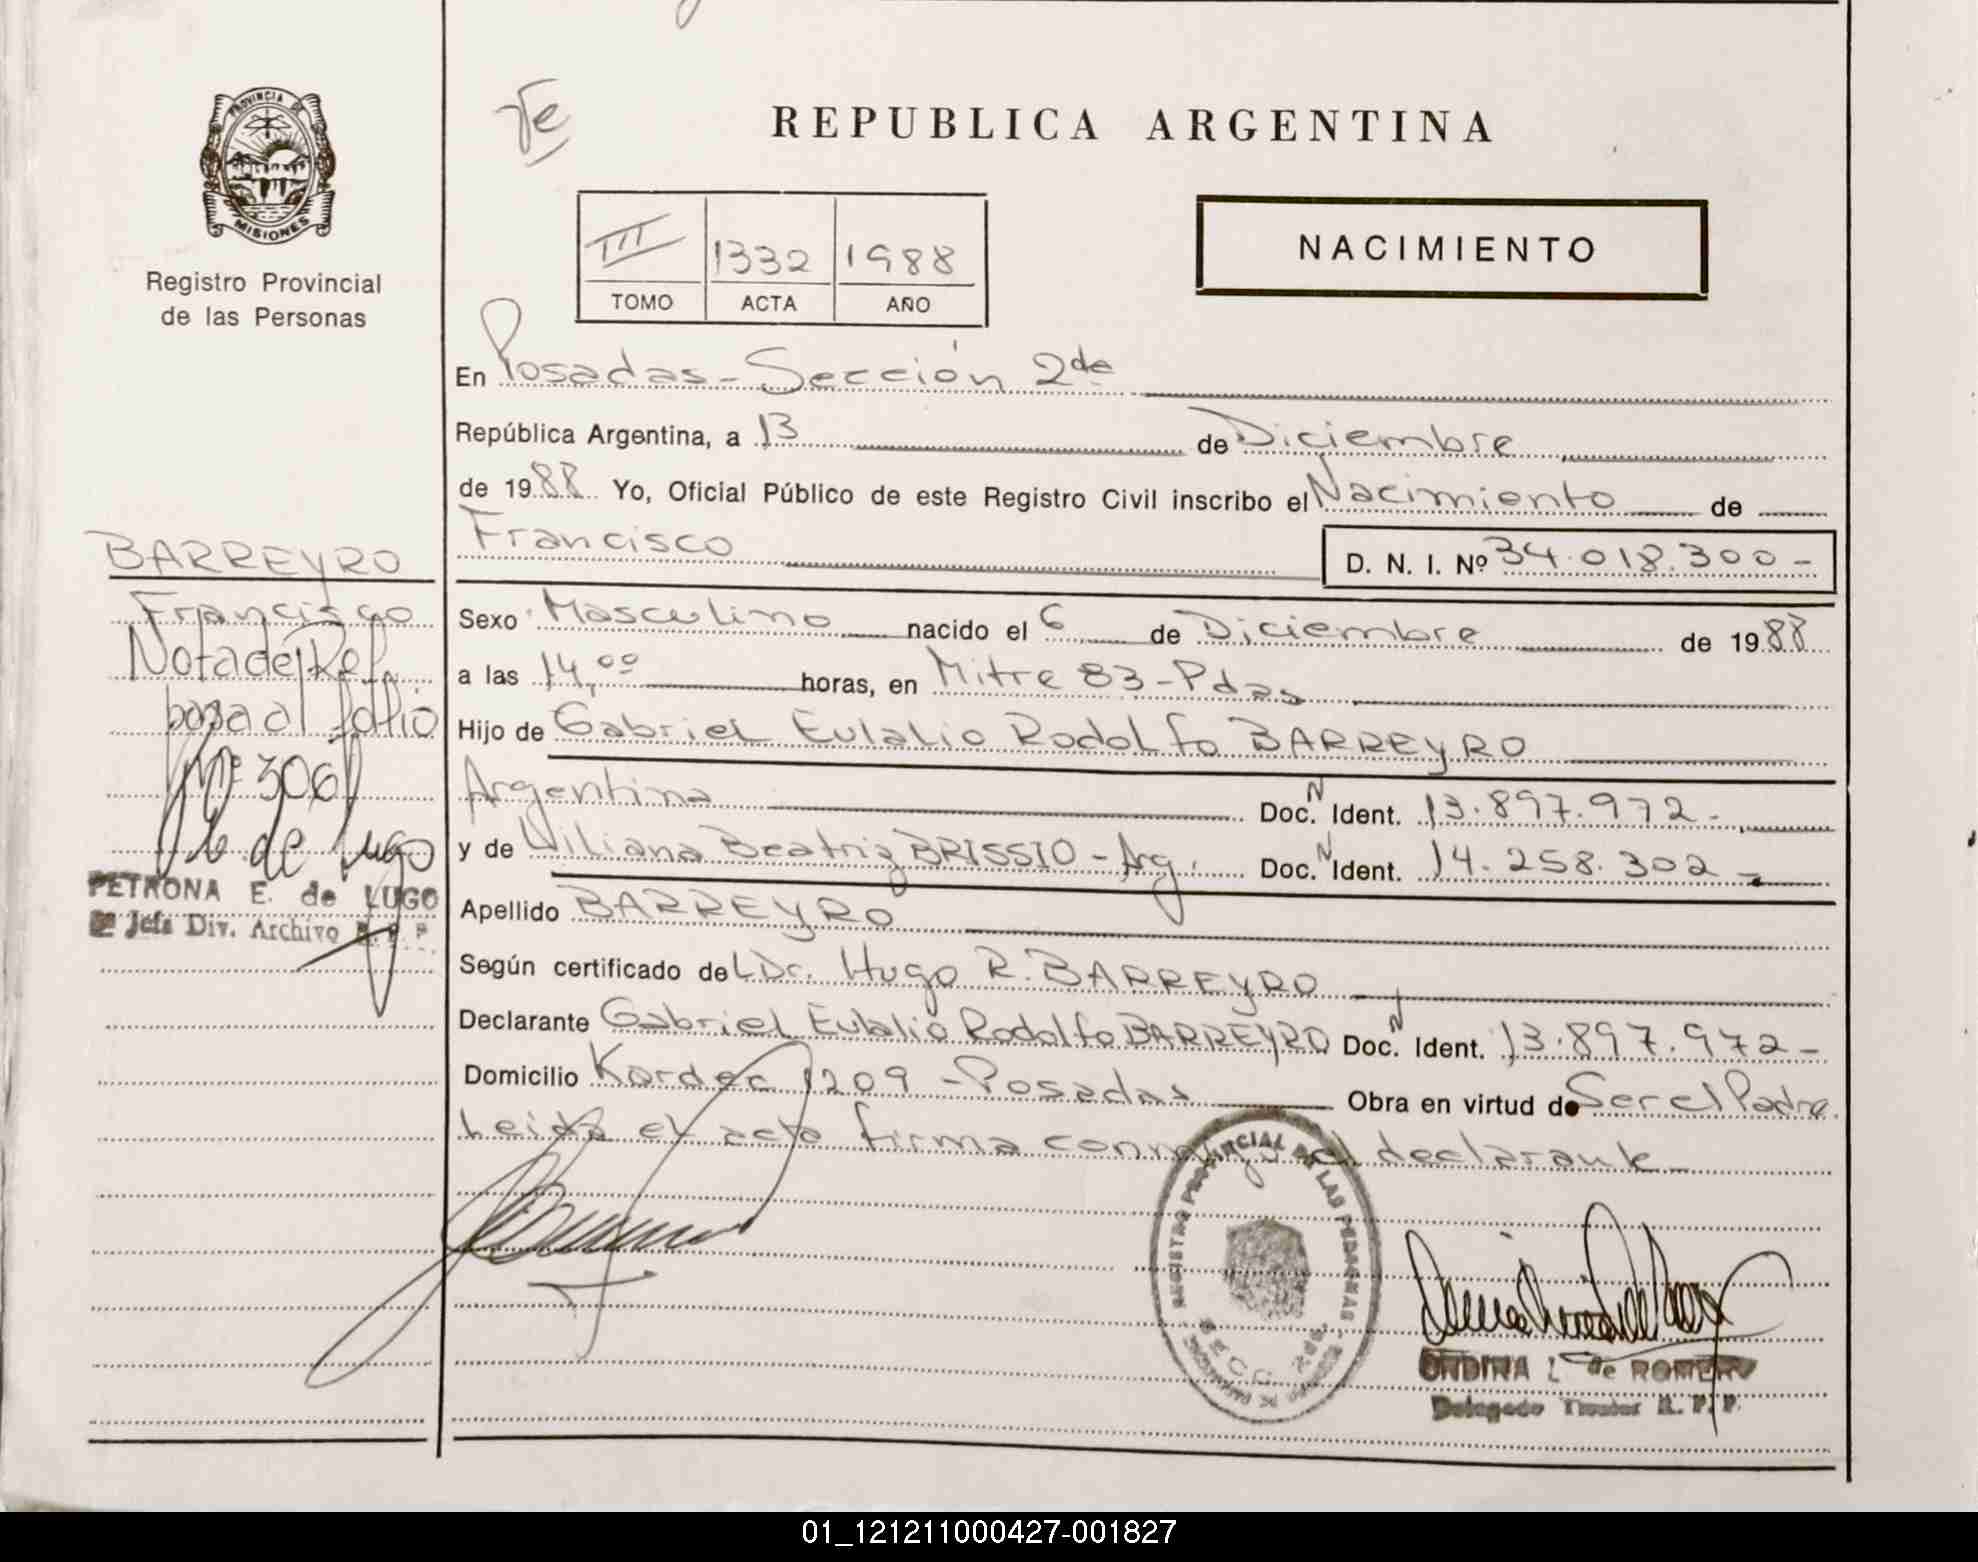 Te
REPUBLICA ARGENTINA
PROVINCIA DE
MISIONES
Registro Provincial
de las Personas
III 1332 1988
TOMO ACTA AÑO
NACIMIENTO
En Posadas - Sección 2da
República Argentina, a 13 de Diciembre
de 1988 Yo, Oficial Público de este Registro Civil inscribo el Nacimiento de
Francisco D. N. I. Nº 34.018.300-
Sexo Masculino nacido el 6 de Diciembre de 1988
a las 14,00 horas, en Mitre 83 - Pdas
Hijo de Gabriel Eulalio Rodolfo BARREYRO
Argentina Doc. N Ident. 13.897.972-
y de Liliana Beatriz BRISSIO - Arg. Doc. N Ident. 14.258.302-
Apellido BARREYRO
Según certificado del Dr. Hugo R. BARREYRO
Declarante Gabriel Eulalio Rodolfo BARREYRO Doc. N Ident. 13.897.972-
Domicilio Kardec 1209 - Posadas Obra en virtud de Ser el Padre
Leida el acta firma conmigo el declarante
BARREYRO
Francisco
Nota de Ref
pasa al folio
Nº 306
de Lugo
PETRONA E. de LUGO
Jefa Div. Archivo R. P. P
REGISTRO PROVINCIAL DE LAS PERSONAS
SECC. 2da
ONDINA L. de ROMERO
Delegado Titular R. P. P.
01_121211000427-001827